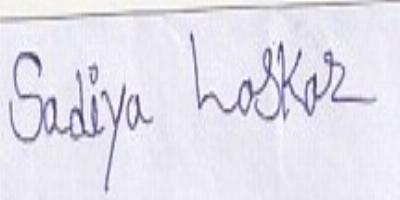 Sadiya Laskar